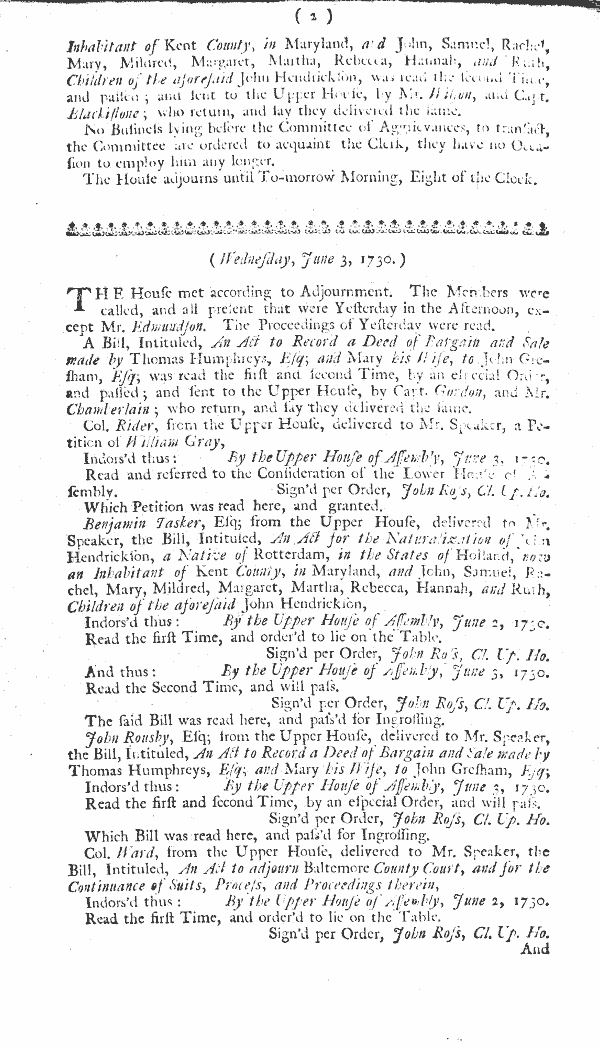 ( 2 )
Inhabitant of Kent County, in Maryland, and John, Samuel, Rachel,
Mary, Mildred, Margaret, Martha, Rebecca, Hannah, and Ruth,
Children of the aforeſaid John Hendrickſon, was read the ſecond Time,
and paſſed ; and ſent to the Upper Houſe, by Mr. and Capt.
Blackiſtone ; who return, and ſay they delivered the ſame.
No Buſineſs lying before the Committee of Aggrievances, to tranſact,
the Committee are ordered to acquaint the Clerk, they have no Occa-
ſion to employ him any longer.
The Houſe adjourns until To-morrow Morning, Eight of the Clock.
( Wedneſday, June 3, 1730. )
THE Houſe met according to Adjournment. The Members were
called, and all preſent that were Yeſterday in the Afternoon, ex-
cept Mr. Edmundſon. The Proceedings of Yeſterday were read.
A Bill, Intituled, An Act to Record a Deed of Bargain and Sale
made by Thomas Humphreys, Eſq; and Mary his Wife, to John Gre-
ſham, Eſq; was read the firſt and ſecond Time, by an eſpecial Order,
and paſſed ; and ſent to the Upper Houſe, by Capt. Gordon, and Mr.
Chamberlain ; who return, and ſay they delivered the ſame.
Col. Rider, from the Upper Houſe, delivered to Mr. Speaker, a Pe-
tition of William Gray,
Indors'd thus : By the Upper Houſe of Aſſembly, June 3, 1730.
Read and referred to the Conſideration of the Lower Houſe of Aſ-
ſembly. Sign'd per Order, John Roſs, Cl. Up. Ho.
Which Petition was read here, and granted.
Benjamin Tasker, Eſq; from the Upper Houſe, delivered to Mr.
Speaker, the Bill, Intituled, An Act for the Naturalization of John
Hendrickſon, a Native of Rotterdam, in the States of Holland, now
an Inhabitant of Kent County, in Maryland, and John, Samuel, Ra-
chel, Mary, Mildred, Margaret, Martha, Rebecca, Hannah, and Ruth,
Children of the aforeſaid John Hendrickſon,
Indors'd thus : By the Upper Houſe of Aſſembly, June 2, 1730.
Read the firſt Time, and order'd to lie on the Table.
Sign'd per Order, John Roſs, Cl. Up. Ho.
And thus : By the Upper Houſe of Aſſembly, June 3, 1730.
Read the Second Time, and will paſs.
Sign'd per Order, John Roſs, Cl. Up. Ho.
The ſaid Bill was read here, and paſs'd for Ingroſſing.
John Rousby, Eſq; from the Upper Houſe, delivered to Mr. Speaker,
the Bill, Intituled, An Act to Record a Deed of Bargain and Sale made by
Thomas Humphreys, Eſq; and Mary his Wife, to John Greſham, Eſq;
Indors'd thus : By the Upper Houſe of Aſſembly, June 3, 1730.
Read the firſt and ſecond Time, by an eſpecial Order, and will paſs.
Sign'd per Order, John Roſs, Cl. Up. Ho.
Which Bill was read here, and paſs'd for Ingroſſing.
Col. Ward, from the Upper Houſe, delivered to Mr. Speaker, the
Bill, Intituled, An Act to adjourn Baltemore County Court, and for the
Continuance of Suits, Proceſs, and Proceedings therein,
Indors'd thus : By the Upper Houſe of Aſſembly, June 2, 1730.
Read the firſt Time, and order'd to lie on the Table.
Sign'd per Order, John Roſs, Cl. Up. Ho.
And